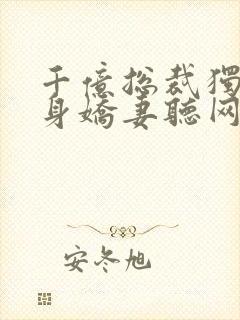 千億总裁獨
身嬌妻聽网
安冬旭